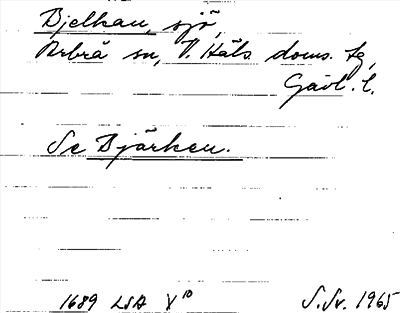 Bjelkan, sjö,
Arbrå sn, V. Häls. doms. tg,
Gävl. l.
Se Björken.
1689 LSA X 10 S.Sv. 1965